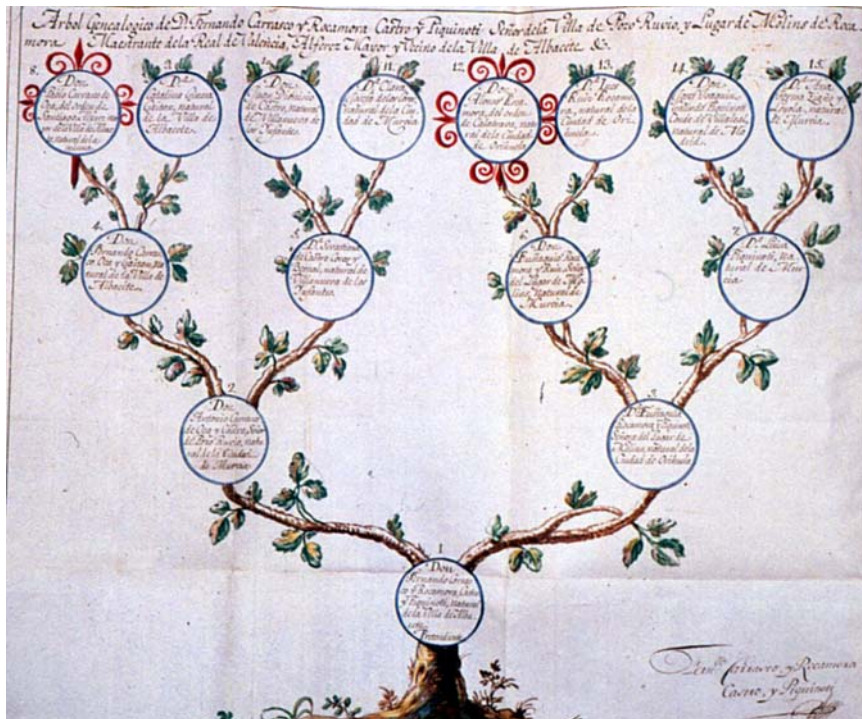 Arbol Genealogico de D. Fernando Carrasco y Rocamora Castro y Piquinoti Señor de la Villa de Pozo Ruvio, y Lugar de Molins de Roca
mora, Maestrante de la Real de Valencia, Alferez Mayor y Vecino de la Villa de Albacete &c.
8.
Don
Carrasco de
Oca, del orden de
Santiago
natural de la
9.
D.ª
Catalina
natural
de la Villa de
Albacete
10.
Don
de Castro, natural
de Villanueva de los
Infantes
11.
D.ª Clara
natural de la Ciu
dad de Murcia
12.
Don
Alonso Roca
mora, del orden
de Calatrava, natu
ral de la Ciudad
de Orihuela
13.
D.ª Luz
Ruiz Rocamo
ra, natural de la
Ciudad de Ori
huela
14.
Don
Piquinoti
Conde de Villaleal,
natural de Ma
drid
15.
D.ª Ana
natural
de Murcia
4.
Don
Fernando Carras
co Oca y Gaitan, Na
tural de la Villa de
Albacete
5.
D.ª
de Castro
natural de
Villanueva de los
Infantes
6.
Don
Roca
mora y Ruiz, Señor
del Lugar de Mo
lins, natural de
Murcia
7.
D.ª Luisa
Piquinoti, Na
tural de Mur
cia
2.
Don
Antonio Carrasco
de Oca y Castro, Señor
de Pozo Ruvio, natu
ral de la Ciudad
de Murcia
3.
D.ª
Rocamora y Piquinoti
Señora del Lugar de
Molins, natural de la
Ciudad de Orihuela
1.
Don
Fernando Carras
co y Rocamora, Castro
y Piquinoti, natural
de la Villa de Alba
cete
Pretendiente
Fern.do Carrasco, y Rocamora
Castro, y Piquinoti